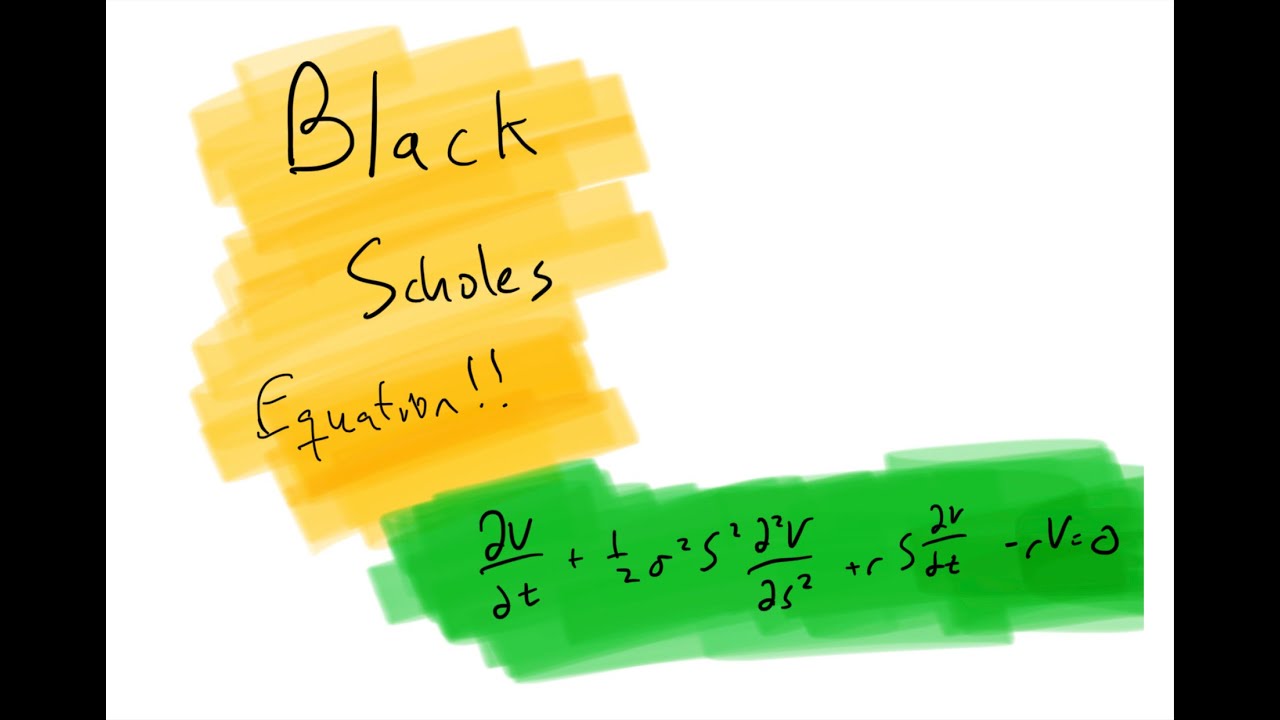 Black
Scholes
Equation!!
∂V/∂t + 1/2 σ²S² ∂²V/∂S² + rS ∂V/∂t - rV = 0